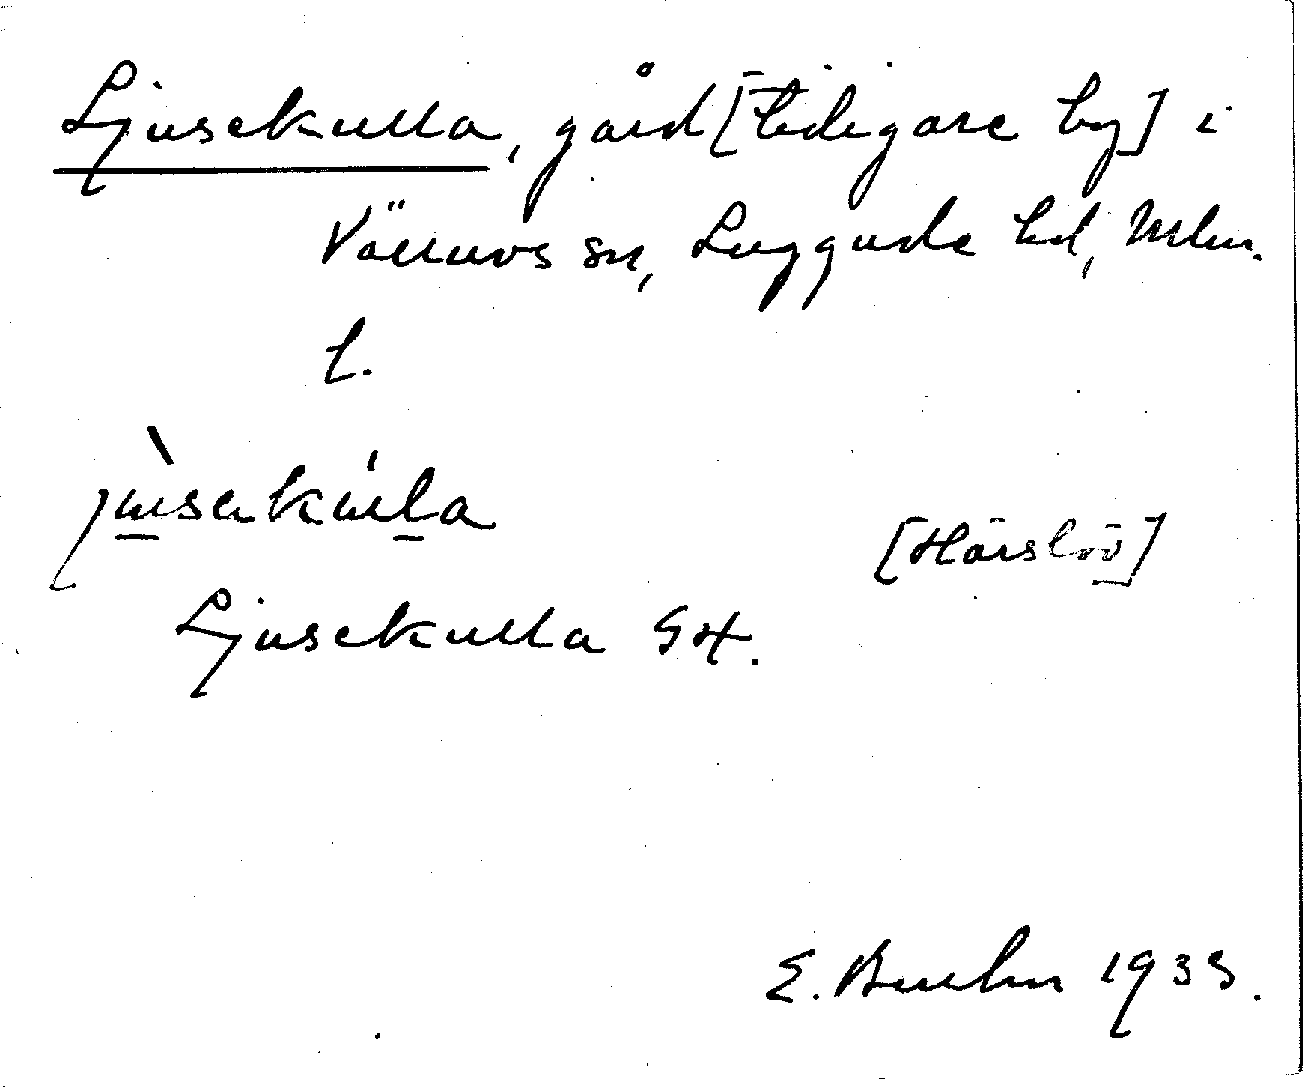 Ljusekulla, gård [tidigare by] i
Välluvs sn, Luggude hd, Mlm.
l.
jùsekúla
[Härslöv]
Ljusekulla GK.
E. 1933.